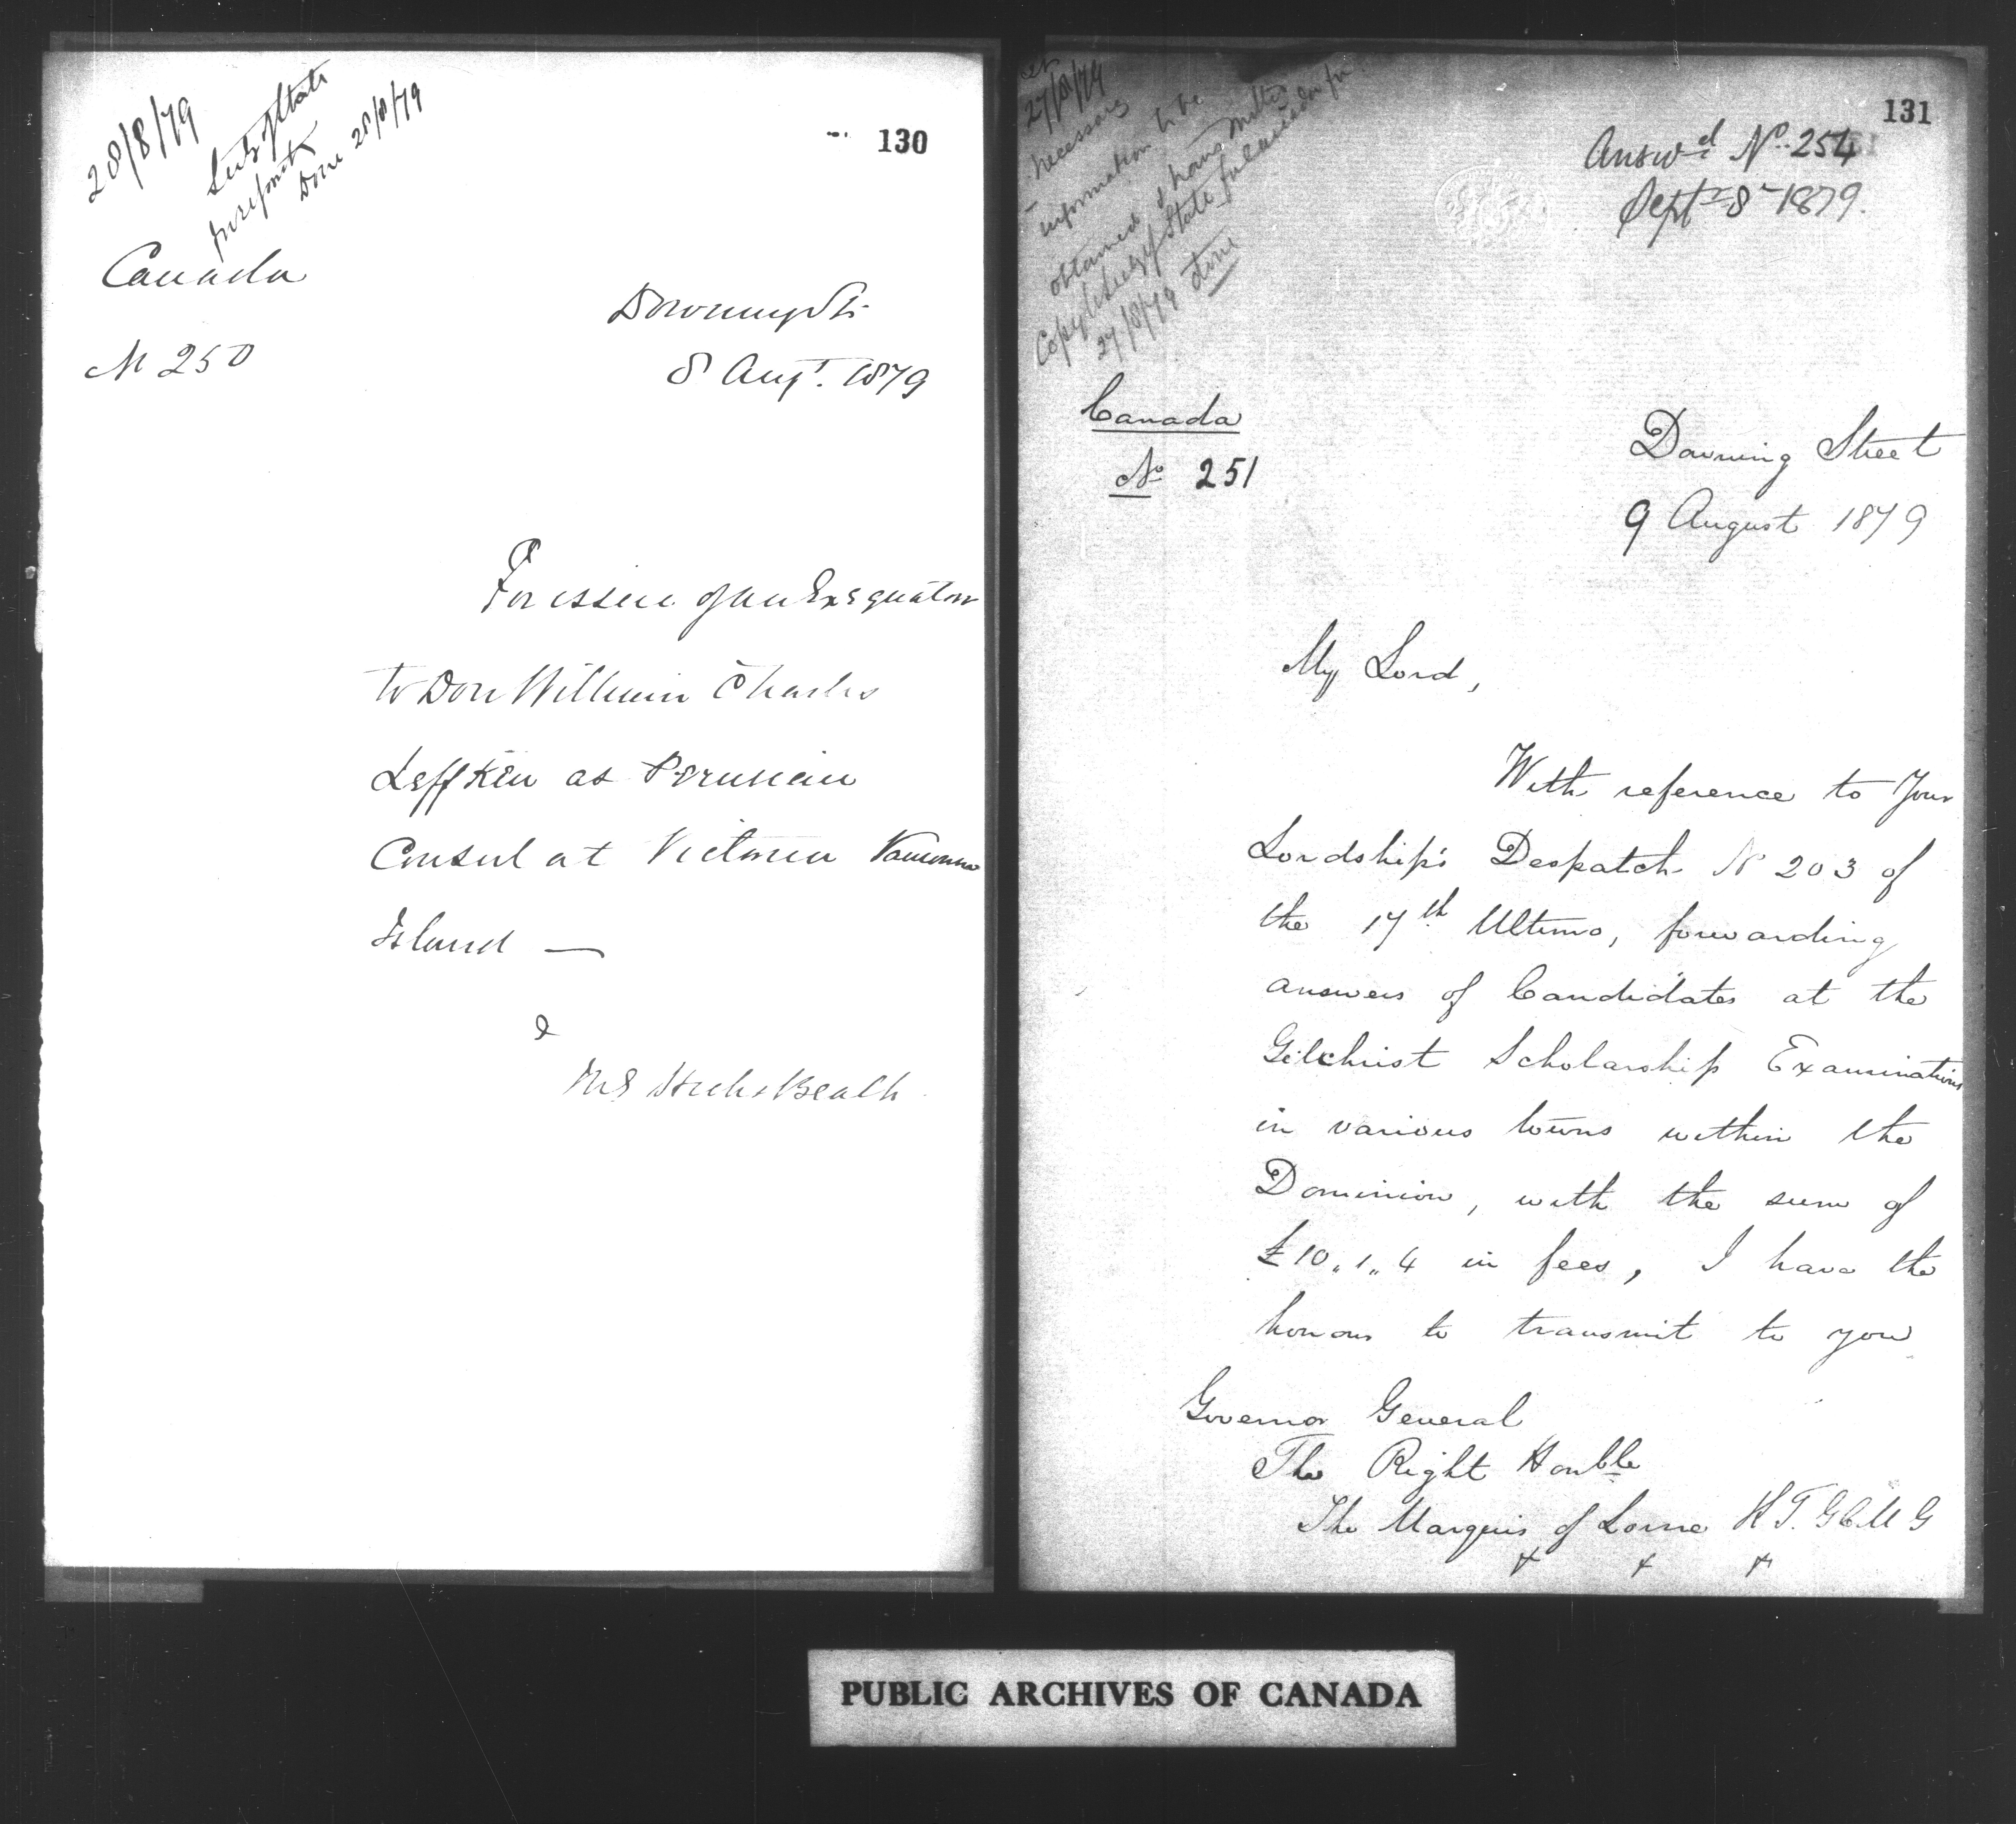 130
28/8/79
Secy of State
Done 28/8/79
Canada
No 250
Downing St.
8 Augt. 1879
For issue of an Exequatur
to Don William Charles
Leffken as Peruvian
Consul at Victoria Vancouver
Island —
&
M E Hicks Beach
131
27/8/79
necessary
information to be
obtained
Copy to Secy of State for
27/8/79 done
Answd No. 254
Septr 8 - 1879.
Canada
No 251
Downing Street
9 August 1879
My Lord,
With reference to Your
Lordship's Despatch No 203 of
the 17th Ultimo, forwarding
answers of Candidates at the
Gilchrist Scholarship Examinations
in various towns within the
Dominion, with the sum of
£10,,1,,4 in fees, I have the
honour to transmit to you
Governor General
The Right Honble
The Marquis of Lorne K.T. G C M G
x x x
PUBLIC ARCHIVES OF CANADA